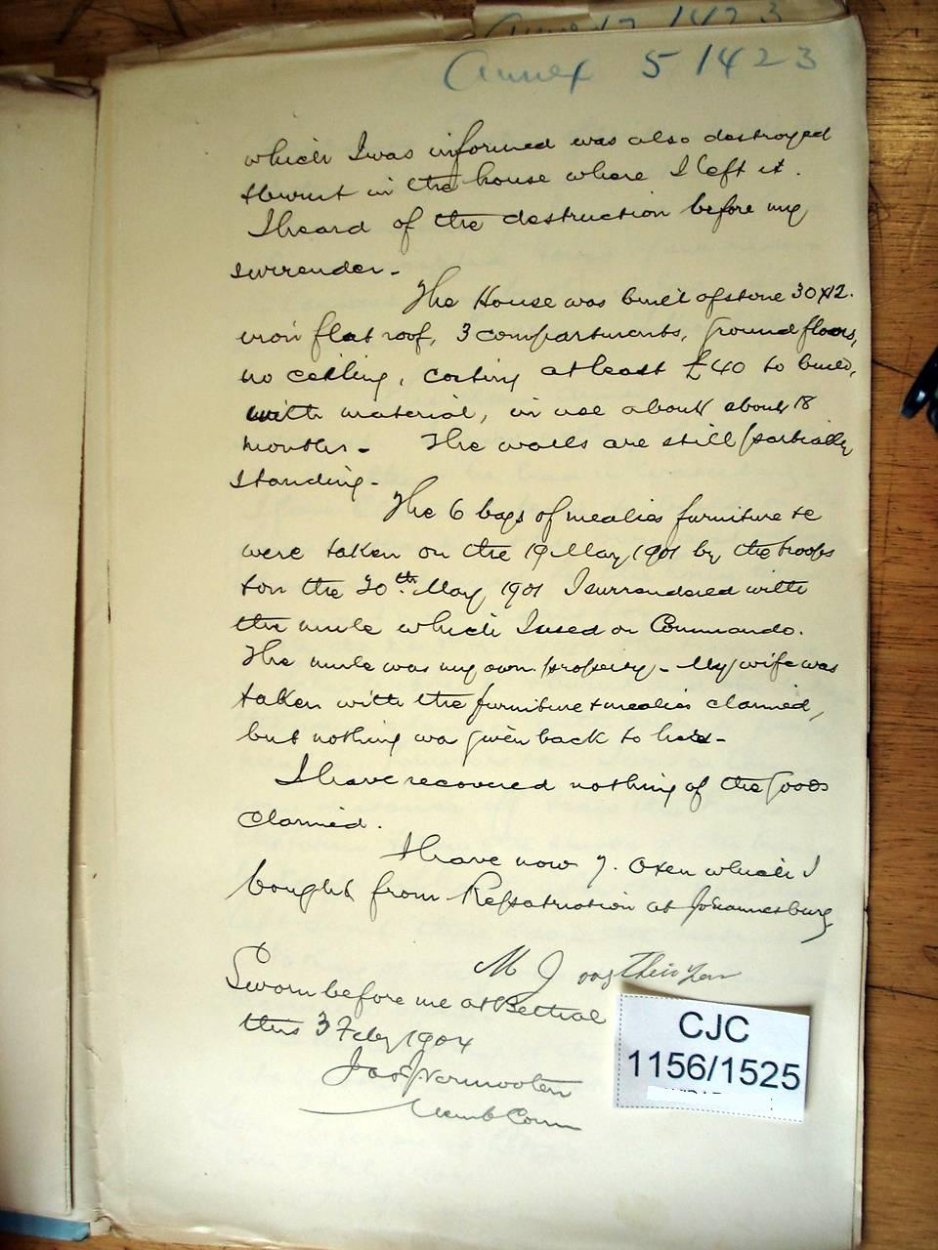 Annex 5 1423
which I was informed was also destroyed
& burnt in the house where I left it.
I heard of the destruction before my
surrender -
The House was built of stone 30 x 12.
iron flat roof, 3 compartments, ground floors,
no ceiling, costing at least £40 to build,
with material, in use about about 18
months - The walls are still partially
standing -
The 6 bags of mealies furniture &c
were taken on the 19 May 1901 by the troops
& on the 20th May 1901 I surrendered with
the mule which I used on Commando.
The mule was my own property - My wife was
taken with the furniture & mealies claimed,
but nothing was given back to her -
I have recovered nothing of the goods
claimed.
I have now 7. Oxen which I
bought from Repatriation at Johannesburg
M J
Sworn before me at Bethal
this 3 Feby 1904
Vermooten
Memb Comm
CJC
1156/1525